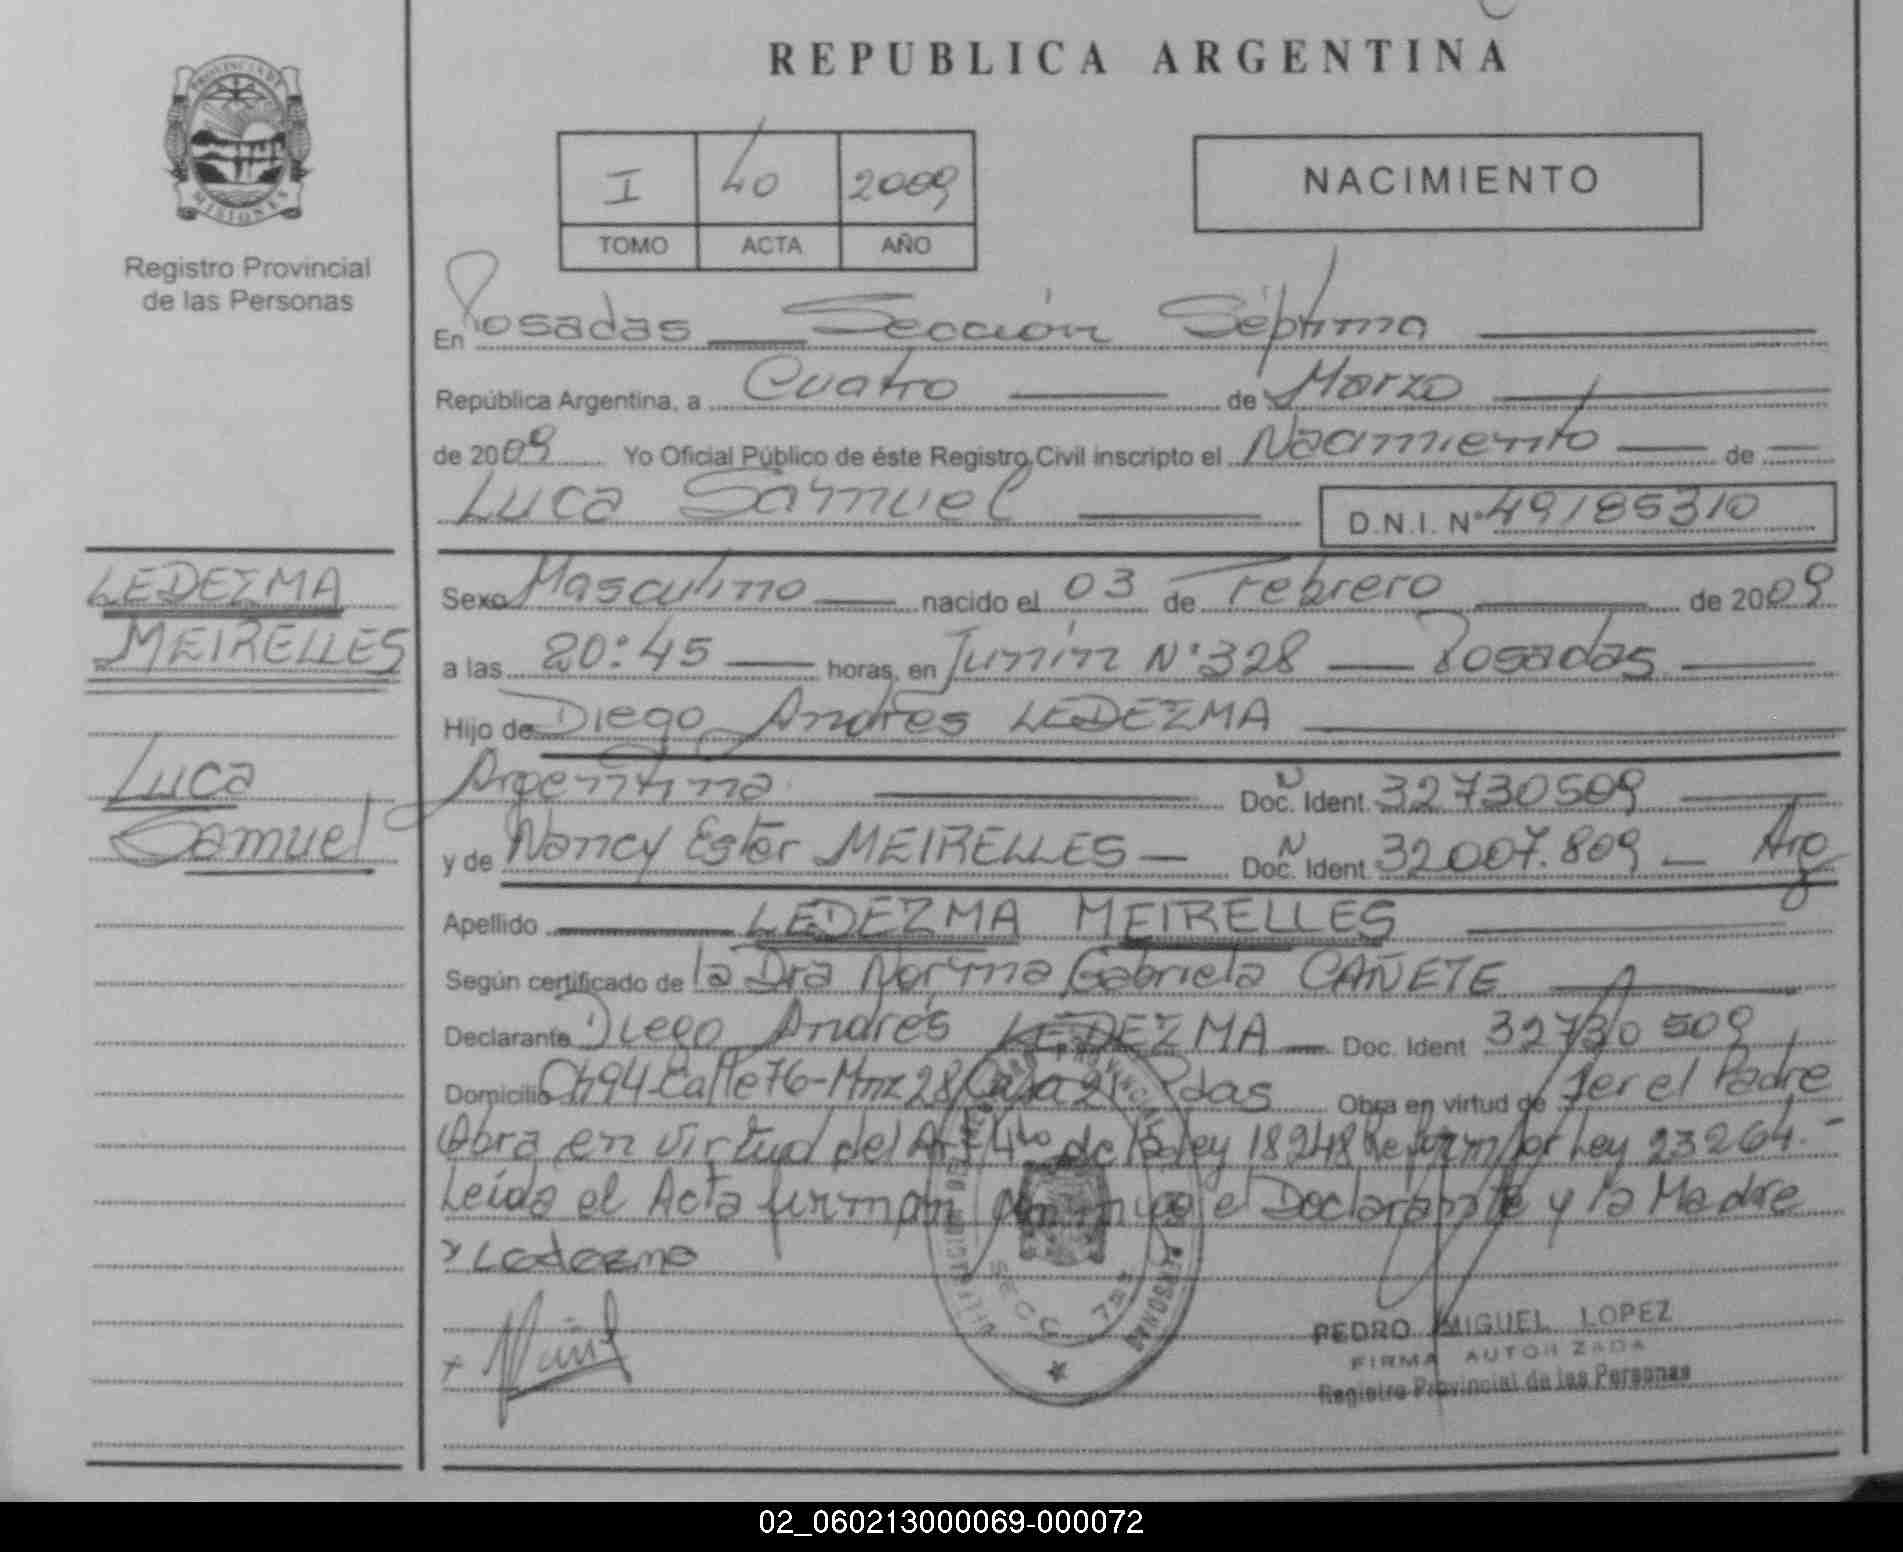 REPUBLICA ARGENTINA
PROVINCIA DE
MISIONES
Registro Provincial
de las Personas
I 40 2009
TOMO ACTA AÑO
NACIMIENTO
En Posadas Sección Séptima
República Argentina, a Cuatro de Marzo
de 2009 Yo Oficial Público de éste Registro Civil inscripto el Nacimiento de
Luca Samuel D.N.I. Nº 49185310
LEDEZMA
MEIRELLES
Luca
Samuel
Sexo Masculino nacido el 03 de Febrero de 2009
a las 20:45 horas, en Junín Nº 328 Posadas
Hijo de Diego Andrés LEDEZMA
Argentina Doc. Ident. 32730509
y de Nancy Ester MEIRELLES Doc. Ident. 32007.809 Arg
Apellido LEDEZMA MEIRELLES
Según certificado de la Dra Norma Gabriela CAÑETE
Declarante Diego Andrés LEDEZMA Doc. Ident 32730 509
Domicilio Ch94-Calle 76-Mnz 28 Casa 21 Pdas Obra en virtud de Ser el Padre
Obra en virtud del Art 4to de la Ley 18248 Reform por Ley 23264.-
Leída el Acta firman conmigo el Declarante y la Madre
Ledezma
SECC. 7ma
PERSONAS
PEDRO MIGUEL LOPEZ
FIRMA AUTORIZADA
Registro Provincial de las Personas
02_060213000069-000072